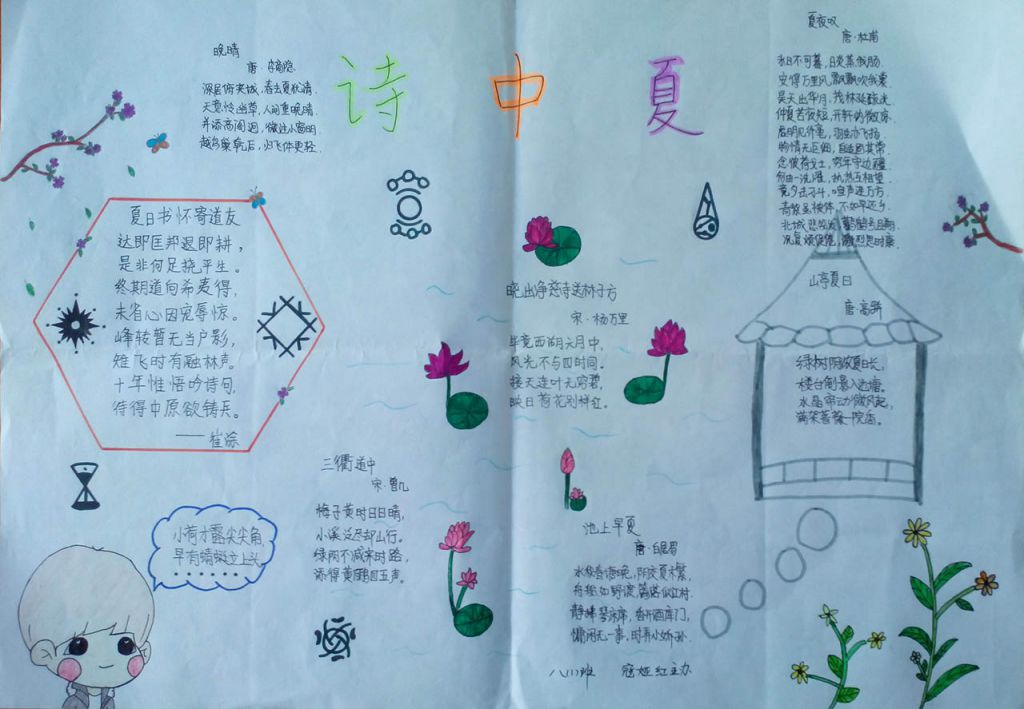 诗中夏
晚晴
唐·李商隐
深居俯夹城，春去夏犹清。
天意怜幽草，人间重晚晴。
并添高阁迥，微注小窗明。
越鸟巢乾后，归飞体更轻。
夏日书怀寄道友
达即匡邦退即耕，
是非何足挠平生。
终期道向希夷得，
未省心因宠辱惊。
峰转暂无当户影，
雉飞时有融林声。
十年惟悟吟诗句，
待得中原欲铸兵。
——崔涂
小荷才露尖尖角，
早有蜻蜓立上头。
三衢道中
宋·曾几
梅子黄时日日晴，
小溪泛尽却山行。
绿阴不减来时路，
添得黄鹂四五声。
晓出净慈寺送林子方
宋·杨万里
毕竟西湖六月中，
风光不与四时同。
接天莲叶无穷碧，
映日荷花别样红。
池上早夏
唐·白居易
水积春塘晚，阴交夏木繁，
舟船如野渡，篱落似江村。
静拂琴床席，香开酒库门，
慵闲无一事，时弄小娇孙。
夏夜叹
唐·杜甫
永日不可暮，炎蒸我肠。
安得万里风，飘飘吹我裳。
昊天出华月，茂林延疏光。
仲夏苦夜短，开轩纳微凉。
虚明见纤毫，羽虫亦飞扬。
物情无巨细，自适固其常。
念彼荷戈士，穷年守边疆。
何由一洗濯，执热互相望。
竟夕击刁斗，喧声连万方。
青紫虽被体，不如早还乡。
北城悲笳发，鹳鹤号且翔。
况复烦促倦，激烈思时康。
山亭夏日
唐·高骈
绿树阴浓夏日长，
楼台倒影入池塘。
水晶帘动微风起，
满架蔷薇一院香。
八(1)班 寇娅红主办